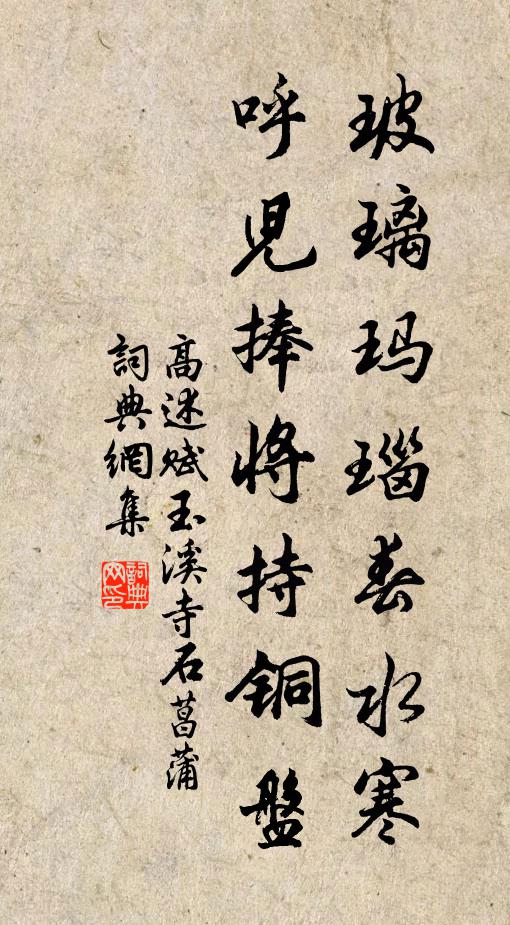 玻璃玛瑙春水寒
呼兒捧將持銅盤
高述赋玉溪寺石菖蒲
詞典網集
詞典网印